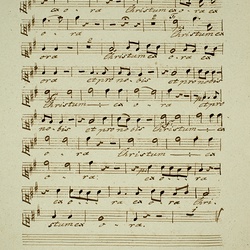 ca o - ra Christum ca, o ra
o - ra
ora Christum ca
ora et pro no - bis o - ra et pro
Christum ca o - ra et pro
no - bis et pro nobis Christum ca
o - ra Christum ca
ca o - ra o - ra
ca o - ra ca o ra Chri,
stum ca o - ra.